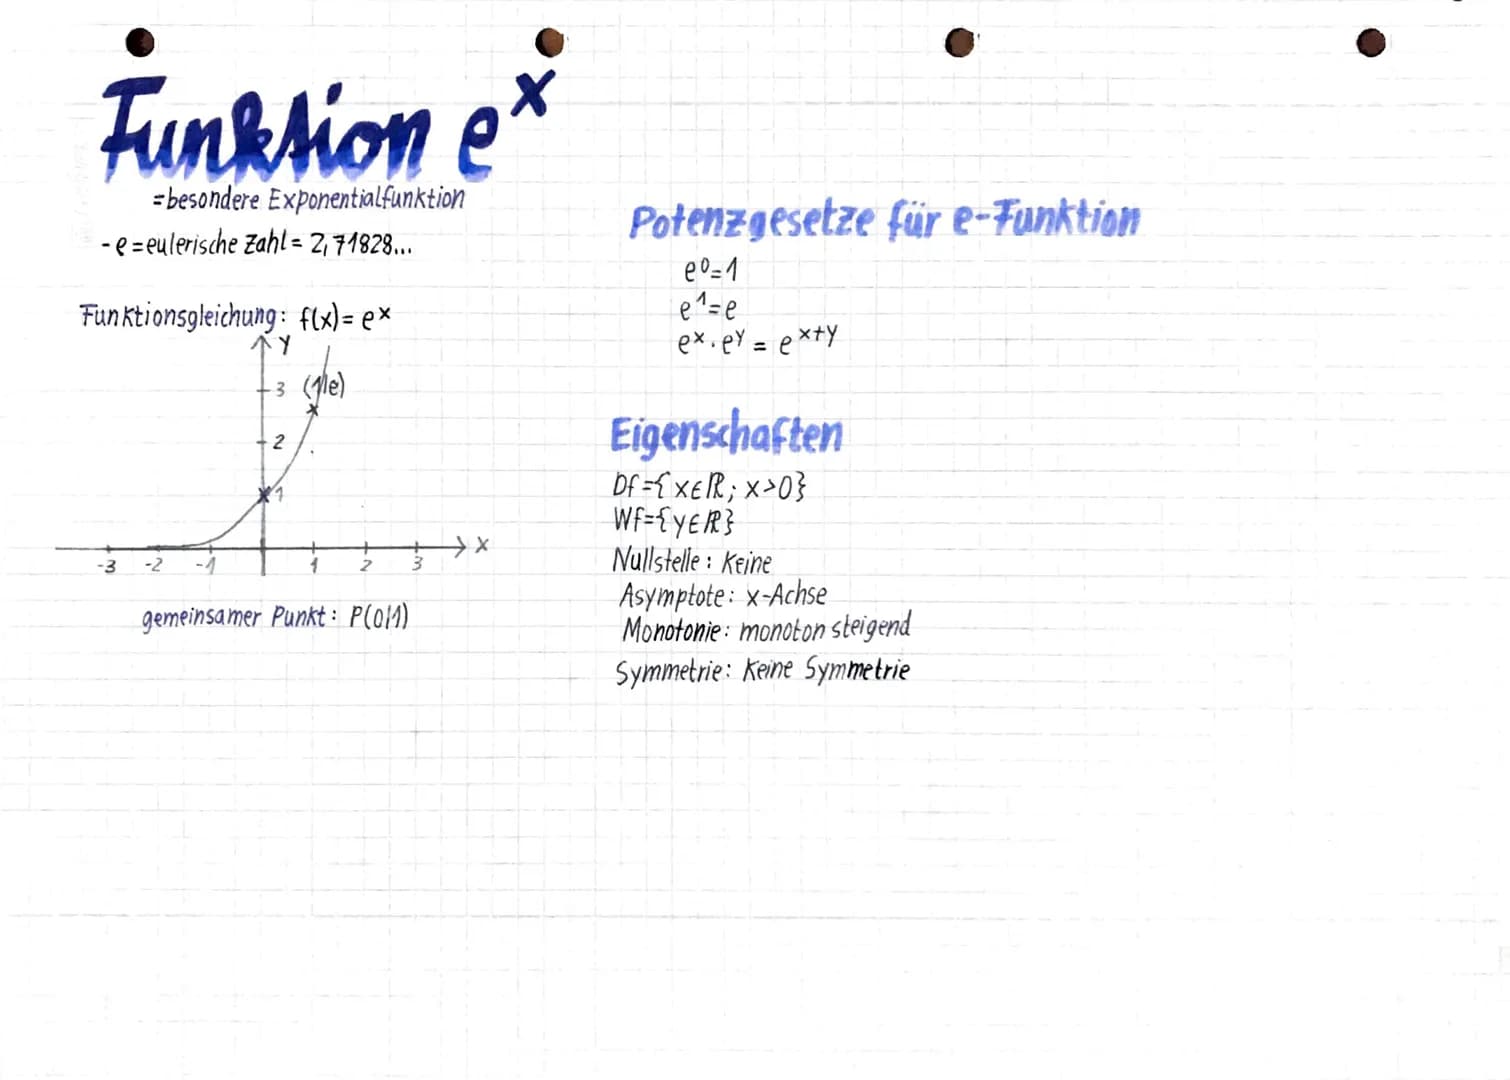 Funktion eˣ
=besondere Exponentialfunktion
- e = eulerische Zahl = 2,71828...
Funktionsgleichung: f(x) = eˣ
Y
3 (1|e)
2
1
-3 -2 -1 1 2 3 X
gemeinsamer Punkt: P(0|1)
Potenzgesetze für e-Funktion
e⁰=1
e¹=e
eˣ · eʸ = eˣ⁺ʸ
Eigenschaften
Df={x∈ℝ; x>0}
Wf={y∈ℝ}
Nullstelle: Keine
Asymptote: x-Achse
Monotonie: monoton steigend
Symmetrie: Keine Symmetrie